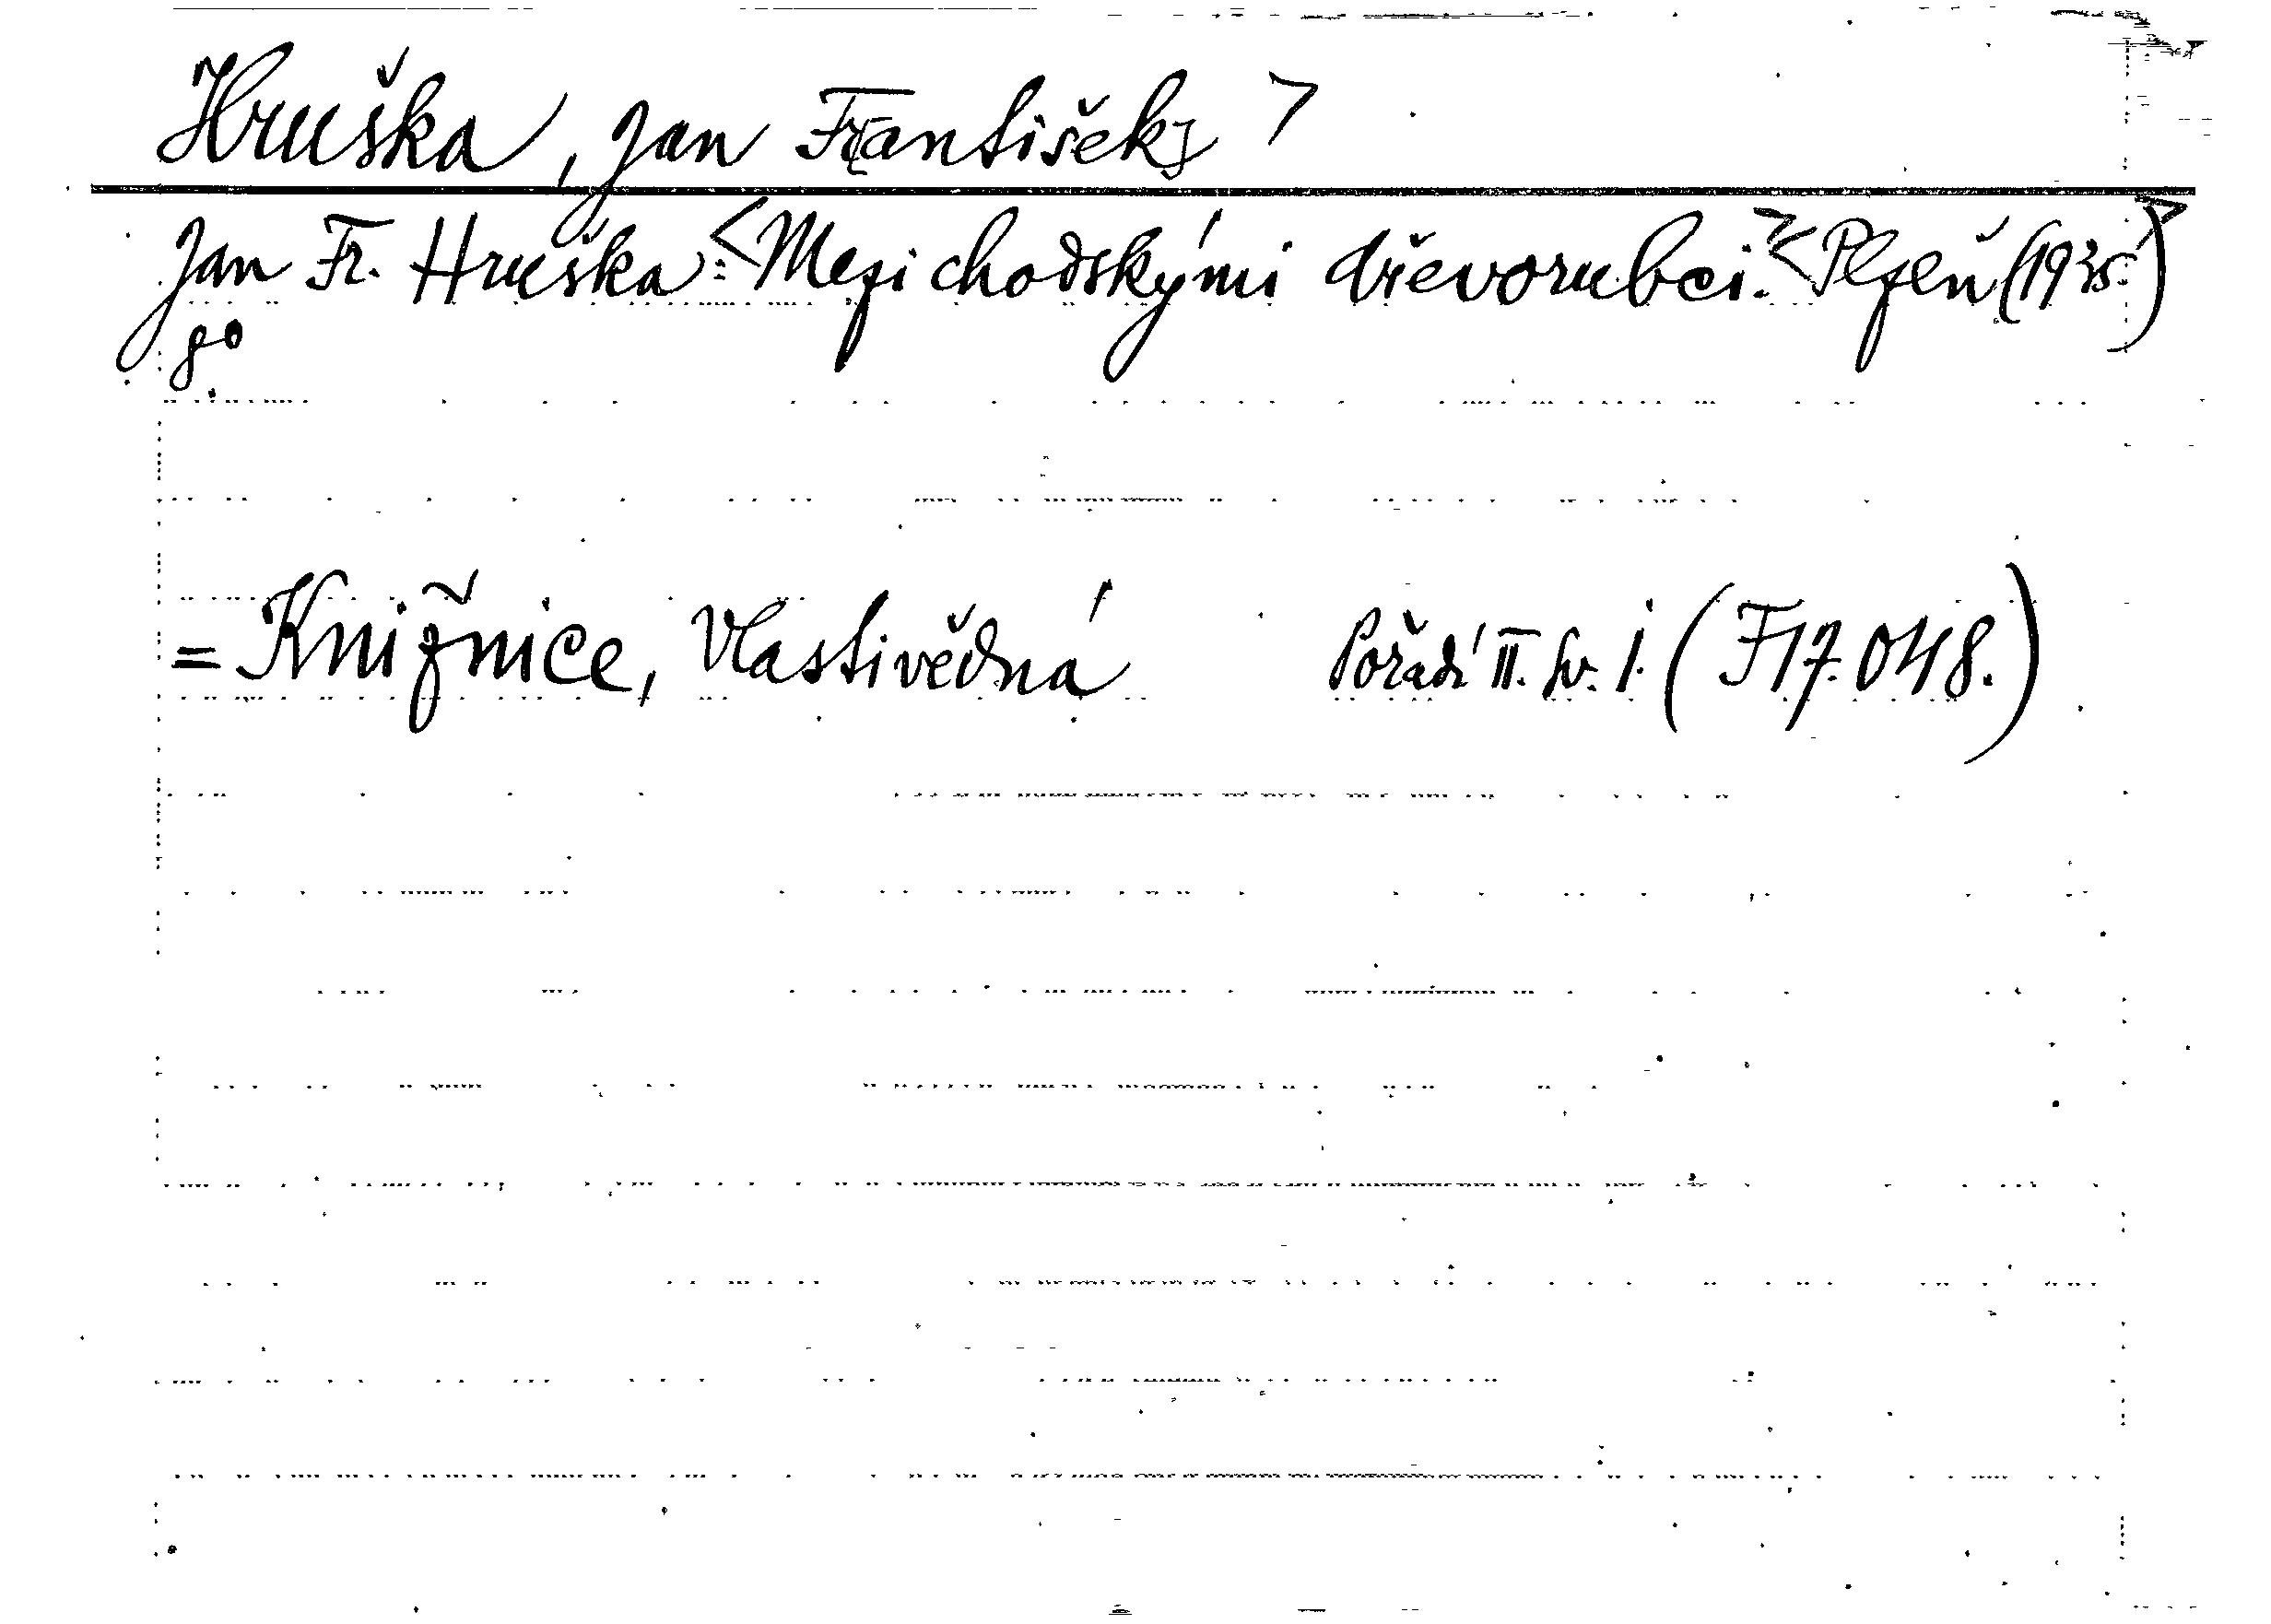 Hruška, Jan Fr[antišek] >
Jan Fr. Hruška: <Mezi chodskými dřevorubci.> <Plzeň (1935.)>
8°
= Knižnice, Vlastivědná Pořadí II. sv. 1. (F17.048.)